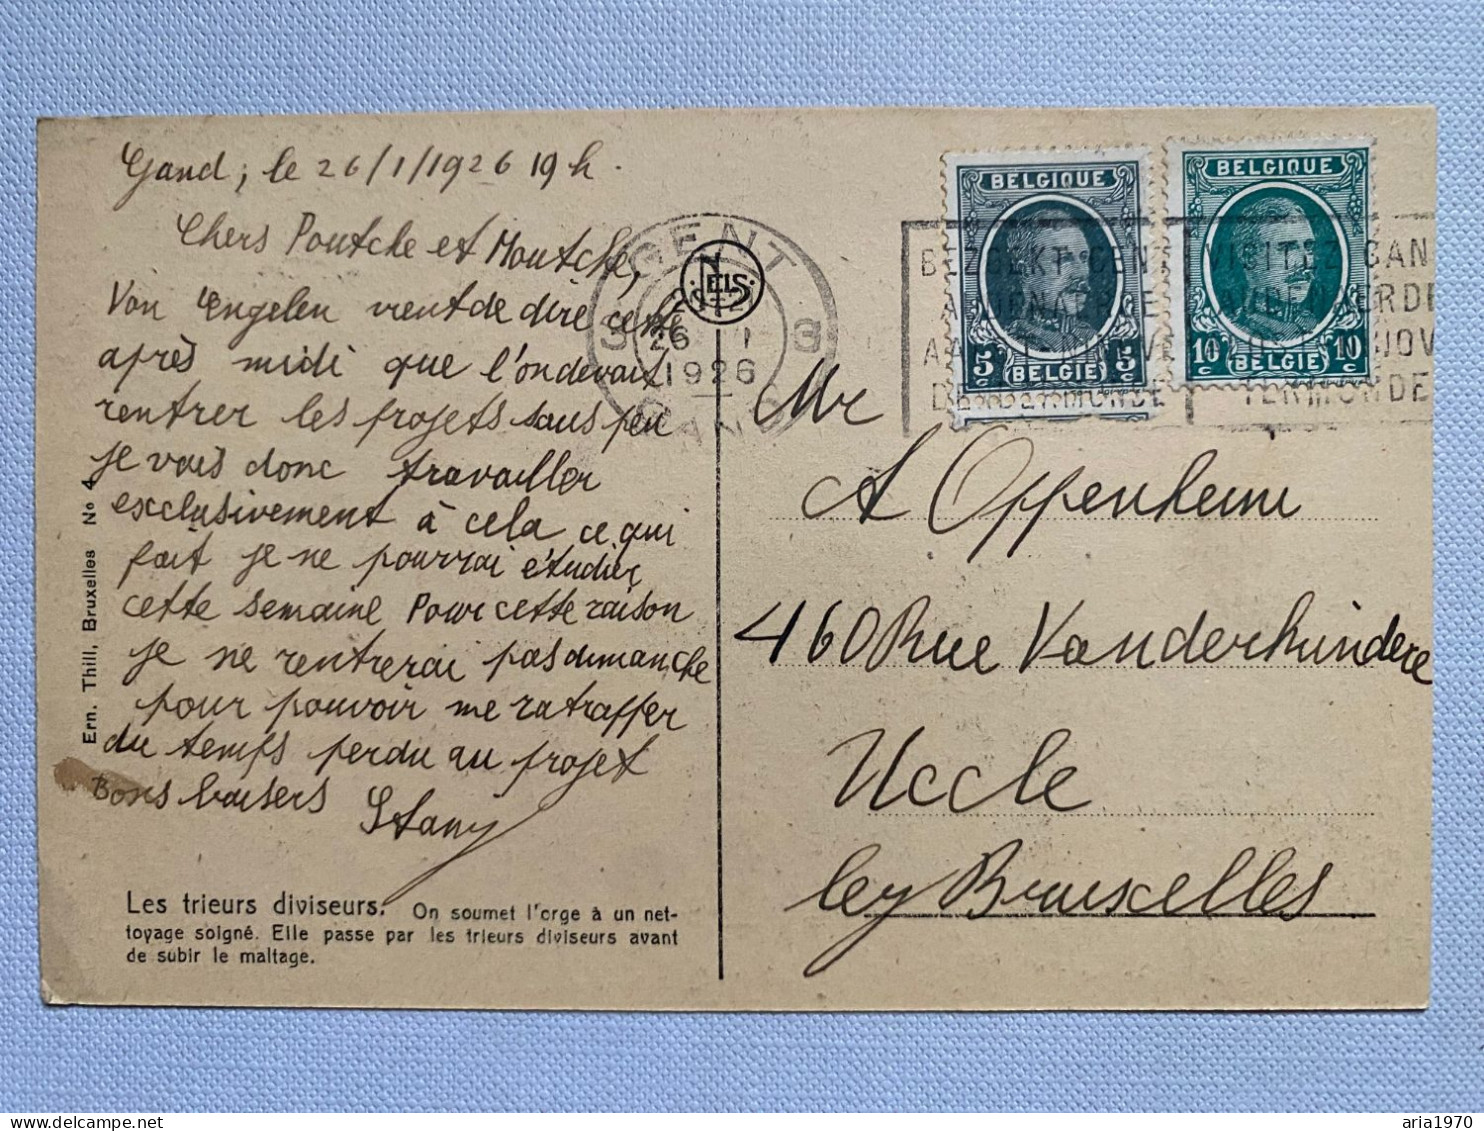 Gand, le 26/1/1926 19 h.
Chers Poutche et Moutche,
Van Engelen vient de dire cette
après midi que l'on devait
rentrer les projets sous peu
je vais donc travailler
exclusivement à cela ce qui
fait je ne pourrai étudier
cette semaine Pour cette raison
je ne rentrerai pas dimanche
pour pouvoir me ratrapper
du temps perdu au projet
Bons baisers Stany
Les trieurs diviseurs. On soumet l'orge à un net-
toyage soigné. Elle passe par les trieurs diviseurs avant
de subir le maltage.
Ern. Thill, Bruxelles No 4
NELS
GENT
3 3
26 I
1926
GAND
BELGIQUE
5c 5c
BELGIE
BELGIQUE
10c 10c
BELGIE
BEZOEKT GENT
VISITEZ GAN
AUDENAERDE
TERMONDE
Mr
A Oppenheim
460 Rue Vanderkindere
Uccle
lez Bruxelles
aria1970